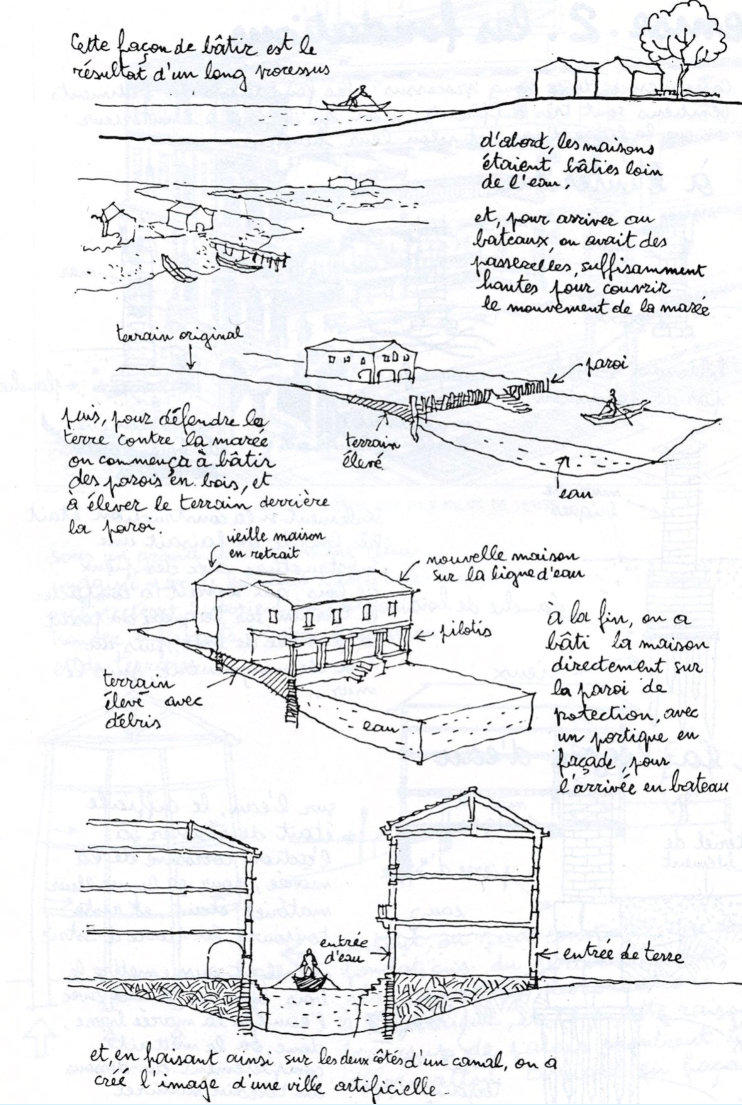 Cette façon de bâtir est le
résultat d'un long processus
d'abord, les maisons
étaient bâties loin
de l'eau,
et, pour arriver au
bateaux, on avait des
passerelles, suffisamment
hautes pour couvrir
le mouvement de la marée
terrain original
paroi
terrain
élevé
eau
puis, pour défendre la
terre contre la marée
on commença à bâtir
des parois en bois, et
à élever le terrain derrière
la paroi.
vieille maison
en retrait
nouvelle maison
sur la ligne d'eau
pilotis
terrain
élevé avec
débris
eau
à la fin, on a
bâti la maison
directement sur
la paroi de
protection, avec
un portique en
façade, pour
l'arrivée en bateau
entrée
d'eau
entrée de terre
et, en faisant ainsi sur les deux côtés d'un canal, on a
créé l'image d'une ville artificielle.